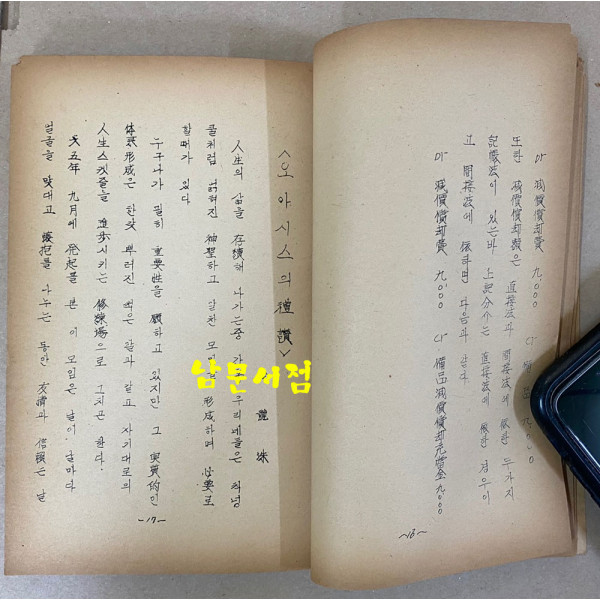 減價償却費 九.000 다 九.000
또한 減價償却額은 直接法과 間接法에 依한 두가지
記帳法이 있는바 上記分介는 直接法에 依한 경우이
고 間接法에 依하면 다음과 같다
減價償却費 九.000 다 備品減價償却充當金 九.000
~16~
<오아시스의 禮讚>
洙
人生의 삶을 存續해 나가는중 우리네들은 하넝
쿨처럼 얽혀진 神聖하고 알찬 形成하며 必要로
할때가 있다
누구나가 필히 重要性을 願하고 있지만 그 実質的인
体裁形成은 한갓 뿌러진 같고 자기대로의
人生스케줄을 進步시키는 修練場으로 그치곤 한다.
六五年 九月에 發起를 본 이 모임은 날이 날마다
얼굴을 맞대고 懷抱를 나누는 동안 友情과 信賴는 날
-17-
남문서점